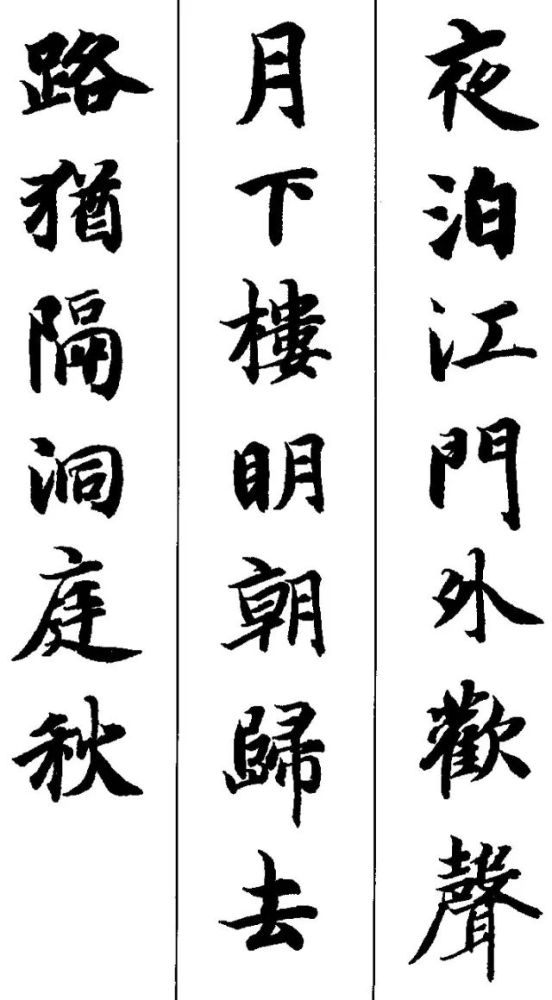 夜泊江門外歡聲
月下樓明朝歸去
路猶隔洞庭秋